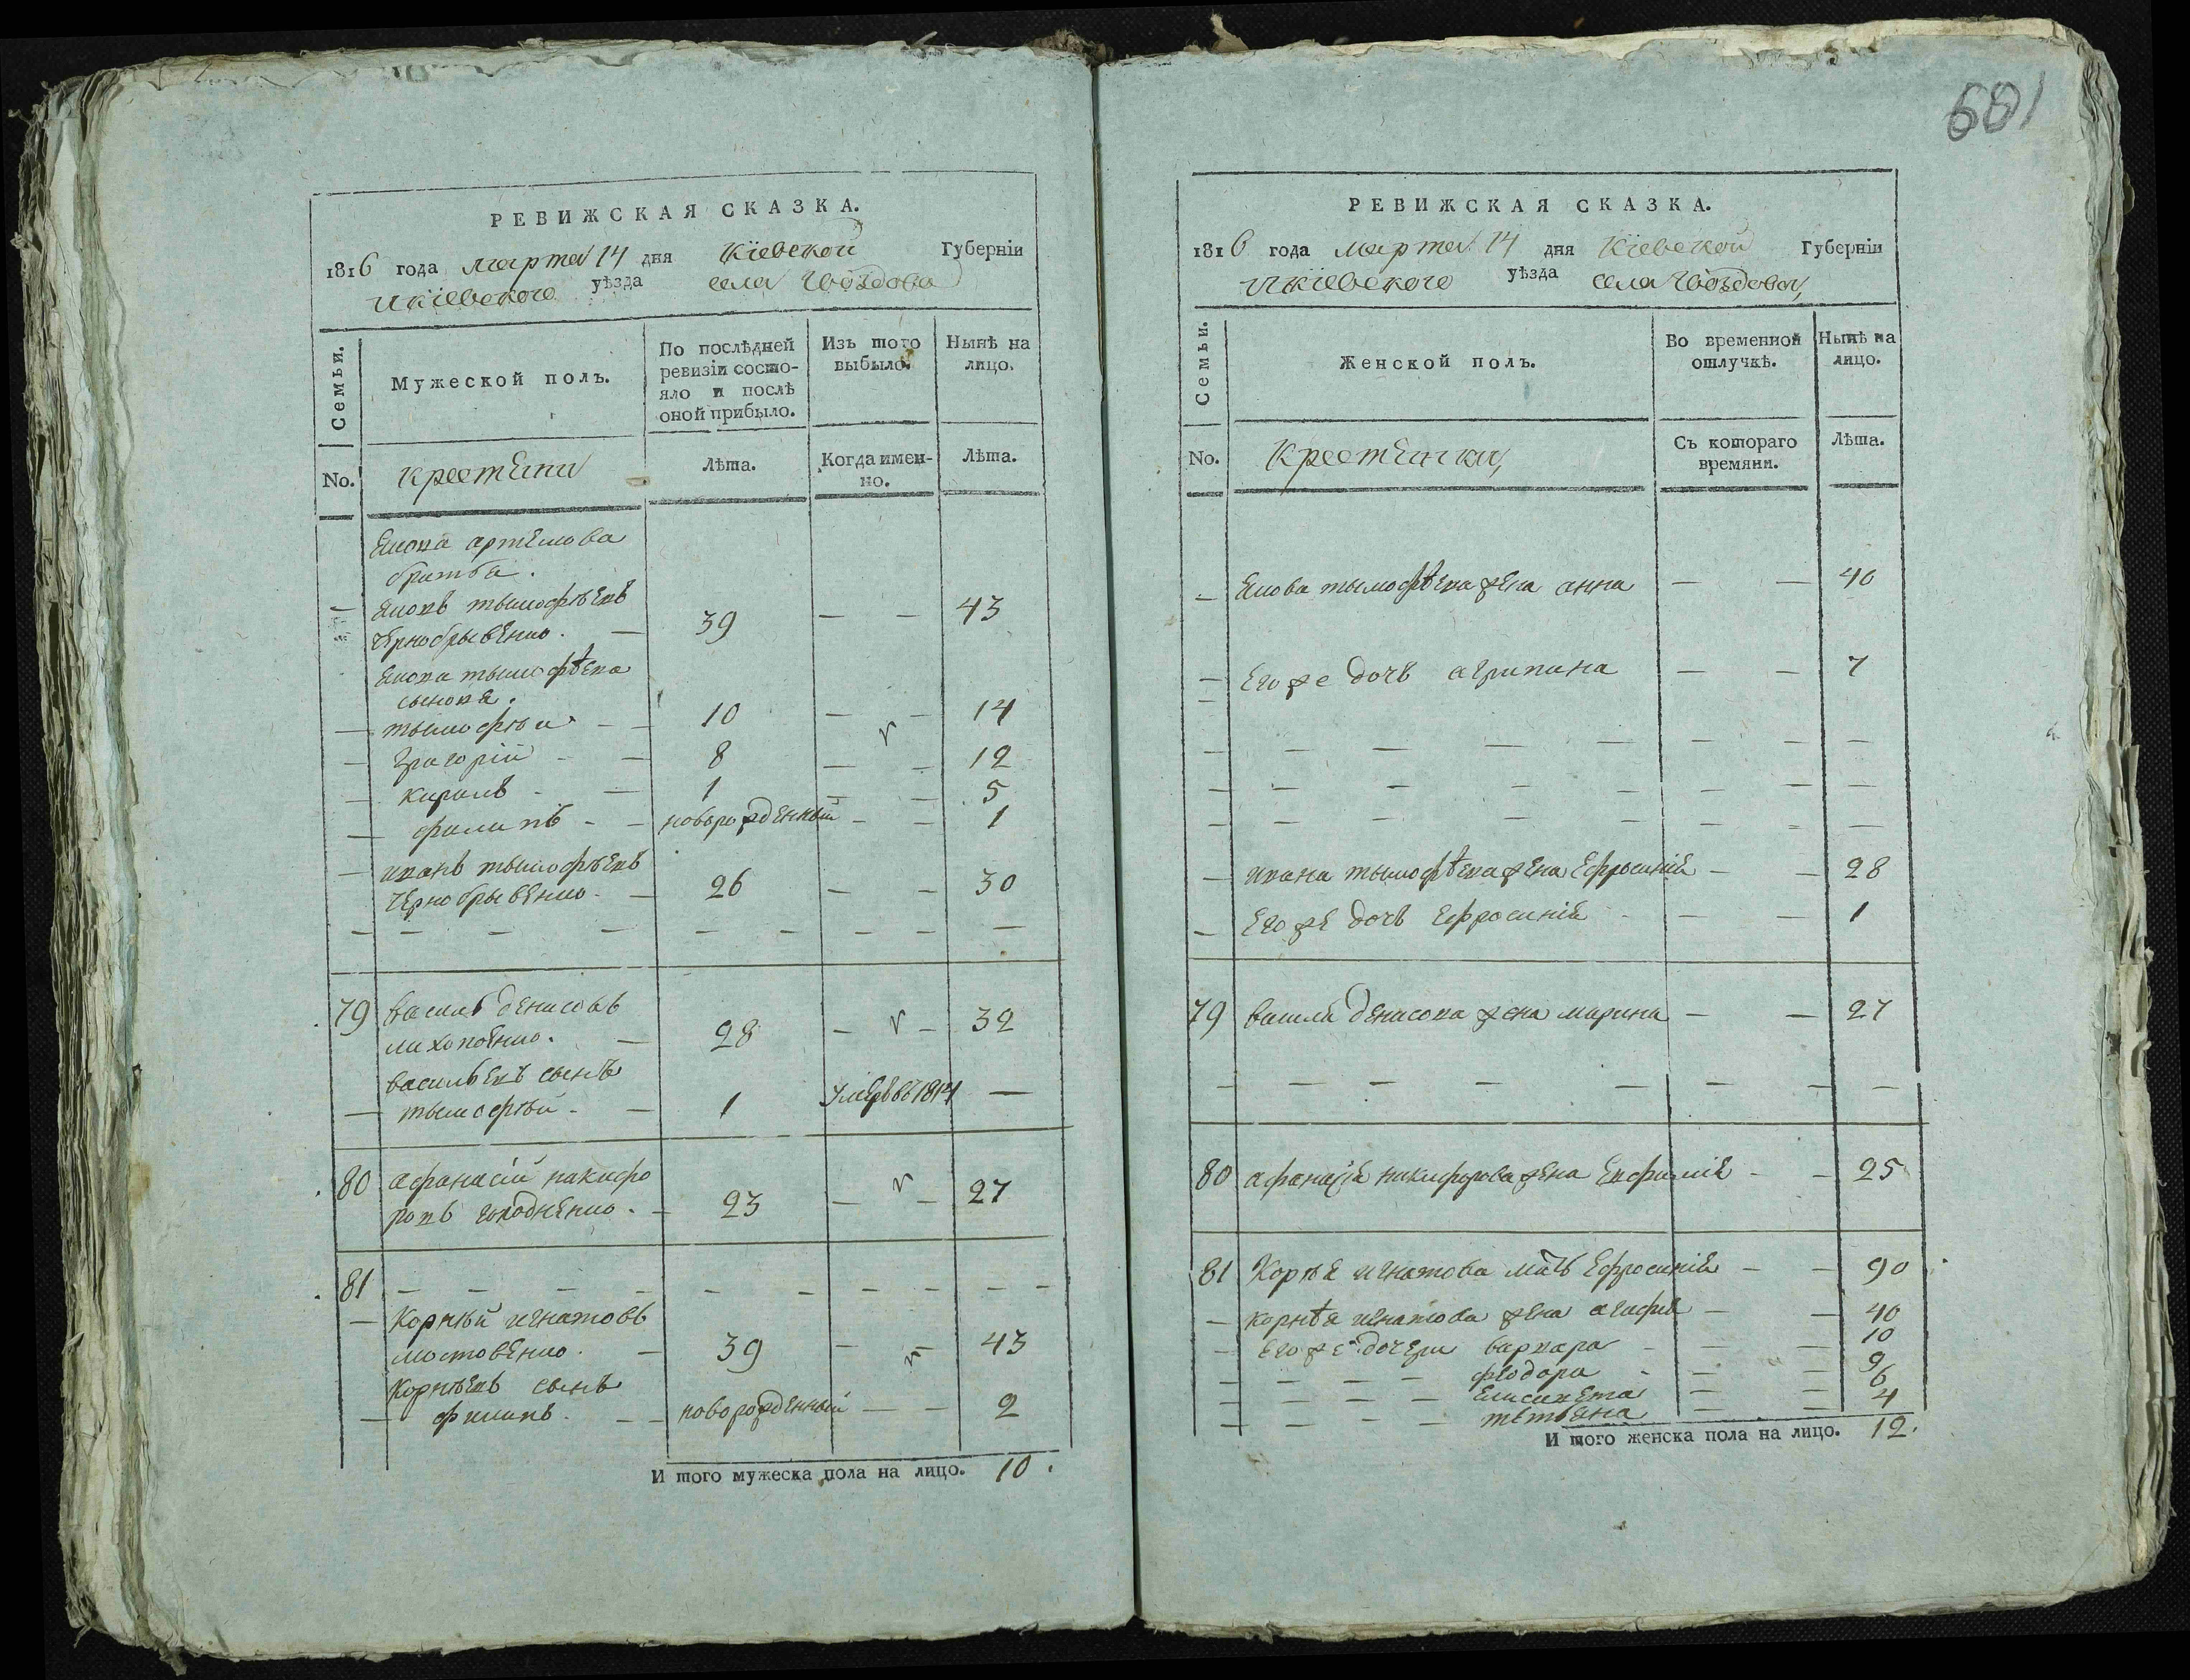 601
РЕВИЖСКАЯ СКАЗКА.
1816 года марта 14 дня Кіевской Губерніи
Икіевского уѣзда села Гвоздова
Семьи.
Мужеской полъ.
По послѣдней ревизіи состо-
яло и послѣ оной прибыло.
Изъ того выбыло.
Нынѣ на лицо.
No.
крестяни
Лѣта.
Когда имен-
но.
Лѣта.
артемова
братья.
тымофѣевъ
Чернобрывенко. — 39 — — 43
тымофѣева
сыновя.
— тымофѣй — — 10 — — 14
— Григорій — — 8 — — 12
— кирилъ — — 1 — — 5
— филипъ — — новорожденный — — 1
— иванъ тымофѣевъ
Чернобрывенко. — 26 — — 30
— — — — — — — — —
79 василь денисовъ
28 — — 32
васильевъ сынъ
— тымофѣй — — 1 умеръ въ 1814 —
80 афанасій никифо
ровъ — 23 — — 27
81 — — — — — — — — — —
— Корнѣй игнатовъ
мостовенко. — 39 — — 43
Корнѣевъ сынъ
— филипъ. — — новорожденный — — 2
И того мужеска пола на лицо. 10.
РЕВИЖСКАЯ СКАЗКА.
1816 года марта 14 дня Кіевской Губерніи
Икіевского уѣзда села Гвоздова
Семьи.
Женской полъ.
Во временной отлучкѣ.
Нынѣ на лицо.
No.
Крестянки
Съ котораго времяни.
Лѣта.
— тымофѣева жена анна — — 40
— Его же дочь агрипина — — 7
— — — — — — — —
— — — — — — — —
— — — — — — — —
— ивана тымофѣева жена Ефросинія — — 28
— Его же дочь Ефросинія — — 1
79 василя денисова жена марина — — 27
— — — — — — — —
80 афанасія никифорова жена Евфимія — — 25
81 Корнѣя игнатова мать Ефросинія — — 90
— корнѣя игнатова жена агафія — — 40
— Его же дочери варвара — — 10
— — — — феодора — — 9
— — — — Елисавета — — 6
— — — — татьяна — — 4
И того женска пола на лицо. 12.